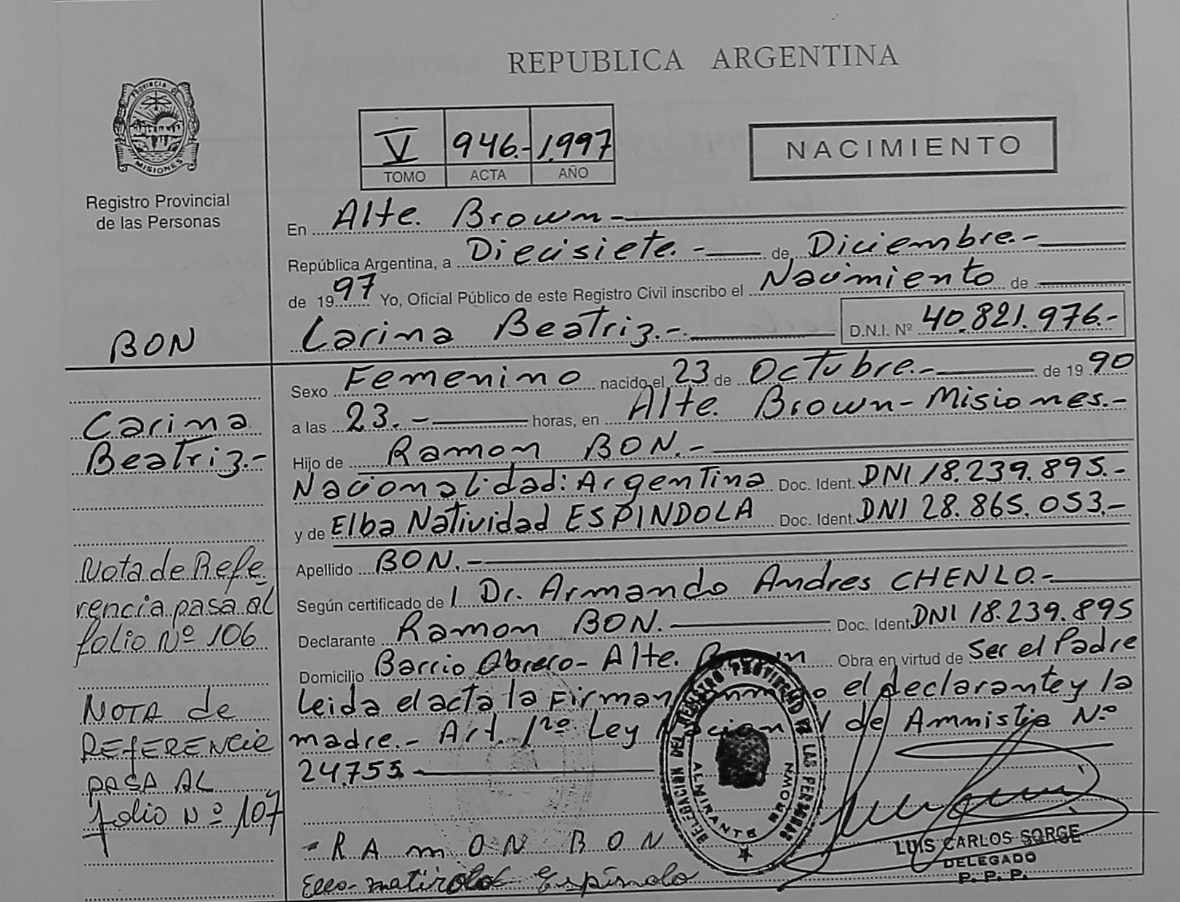 REPUBLICA ARGENTINA
PROVINCIA DE MISIONES
Registro Provincial
de las Personas
V 946.- 1.997
TOMO ACTA AÑO
NACIMIENTO
En Alte. Brown.-
República Argentina, a Diecisiete.- de Diciembre.-
de 1997 Yo, Oficial Público de este Registro Civil inscribo el Nacimiento de
Carina Beatriz.- D.N.I. Nº 40.821.976.-
BON
Carina
Beatriz.-
Nota de Refe
rencia pasa al
folio Nº 106
NOTA de
REFERENCIA
PASA AL
folio Nº 107
Sexo Femenino nacido el 23 de Octubre.- de 1990
a las 23.- horas, en Alte. Brown - Misiones.-
Hijo de Ramon BON.-
Nacionalidad: Argentina Doc. Ident. DNI 18.239.895.-
y de Elba Natividad ESPINDOLA Doc. Ident. DNI 28.865.053.-
Apellido BON.-
Según certificado de l Dr. Armando Andres CHENLO.-
Declarante Ramon BON.- Doc. Ident. DNI 18.239.895
Domicilio Barrio Obrero - Alte. Brown Obra en virtud de Ser el Padre
Leida el acta la Firman el declarante y la
madre.- Art. 1º Ley Nacional de Amnistia Nº
24.755.-
DELEGACION DEL REGISTRO PROVINCIAL DE LAS PERSONAS
ALMIRANTE BROWN
RAMON BON
Espindola
LUIS CARLOS SORGE
DELEGADO
P. P. P.